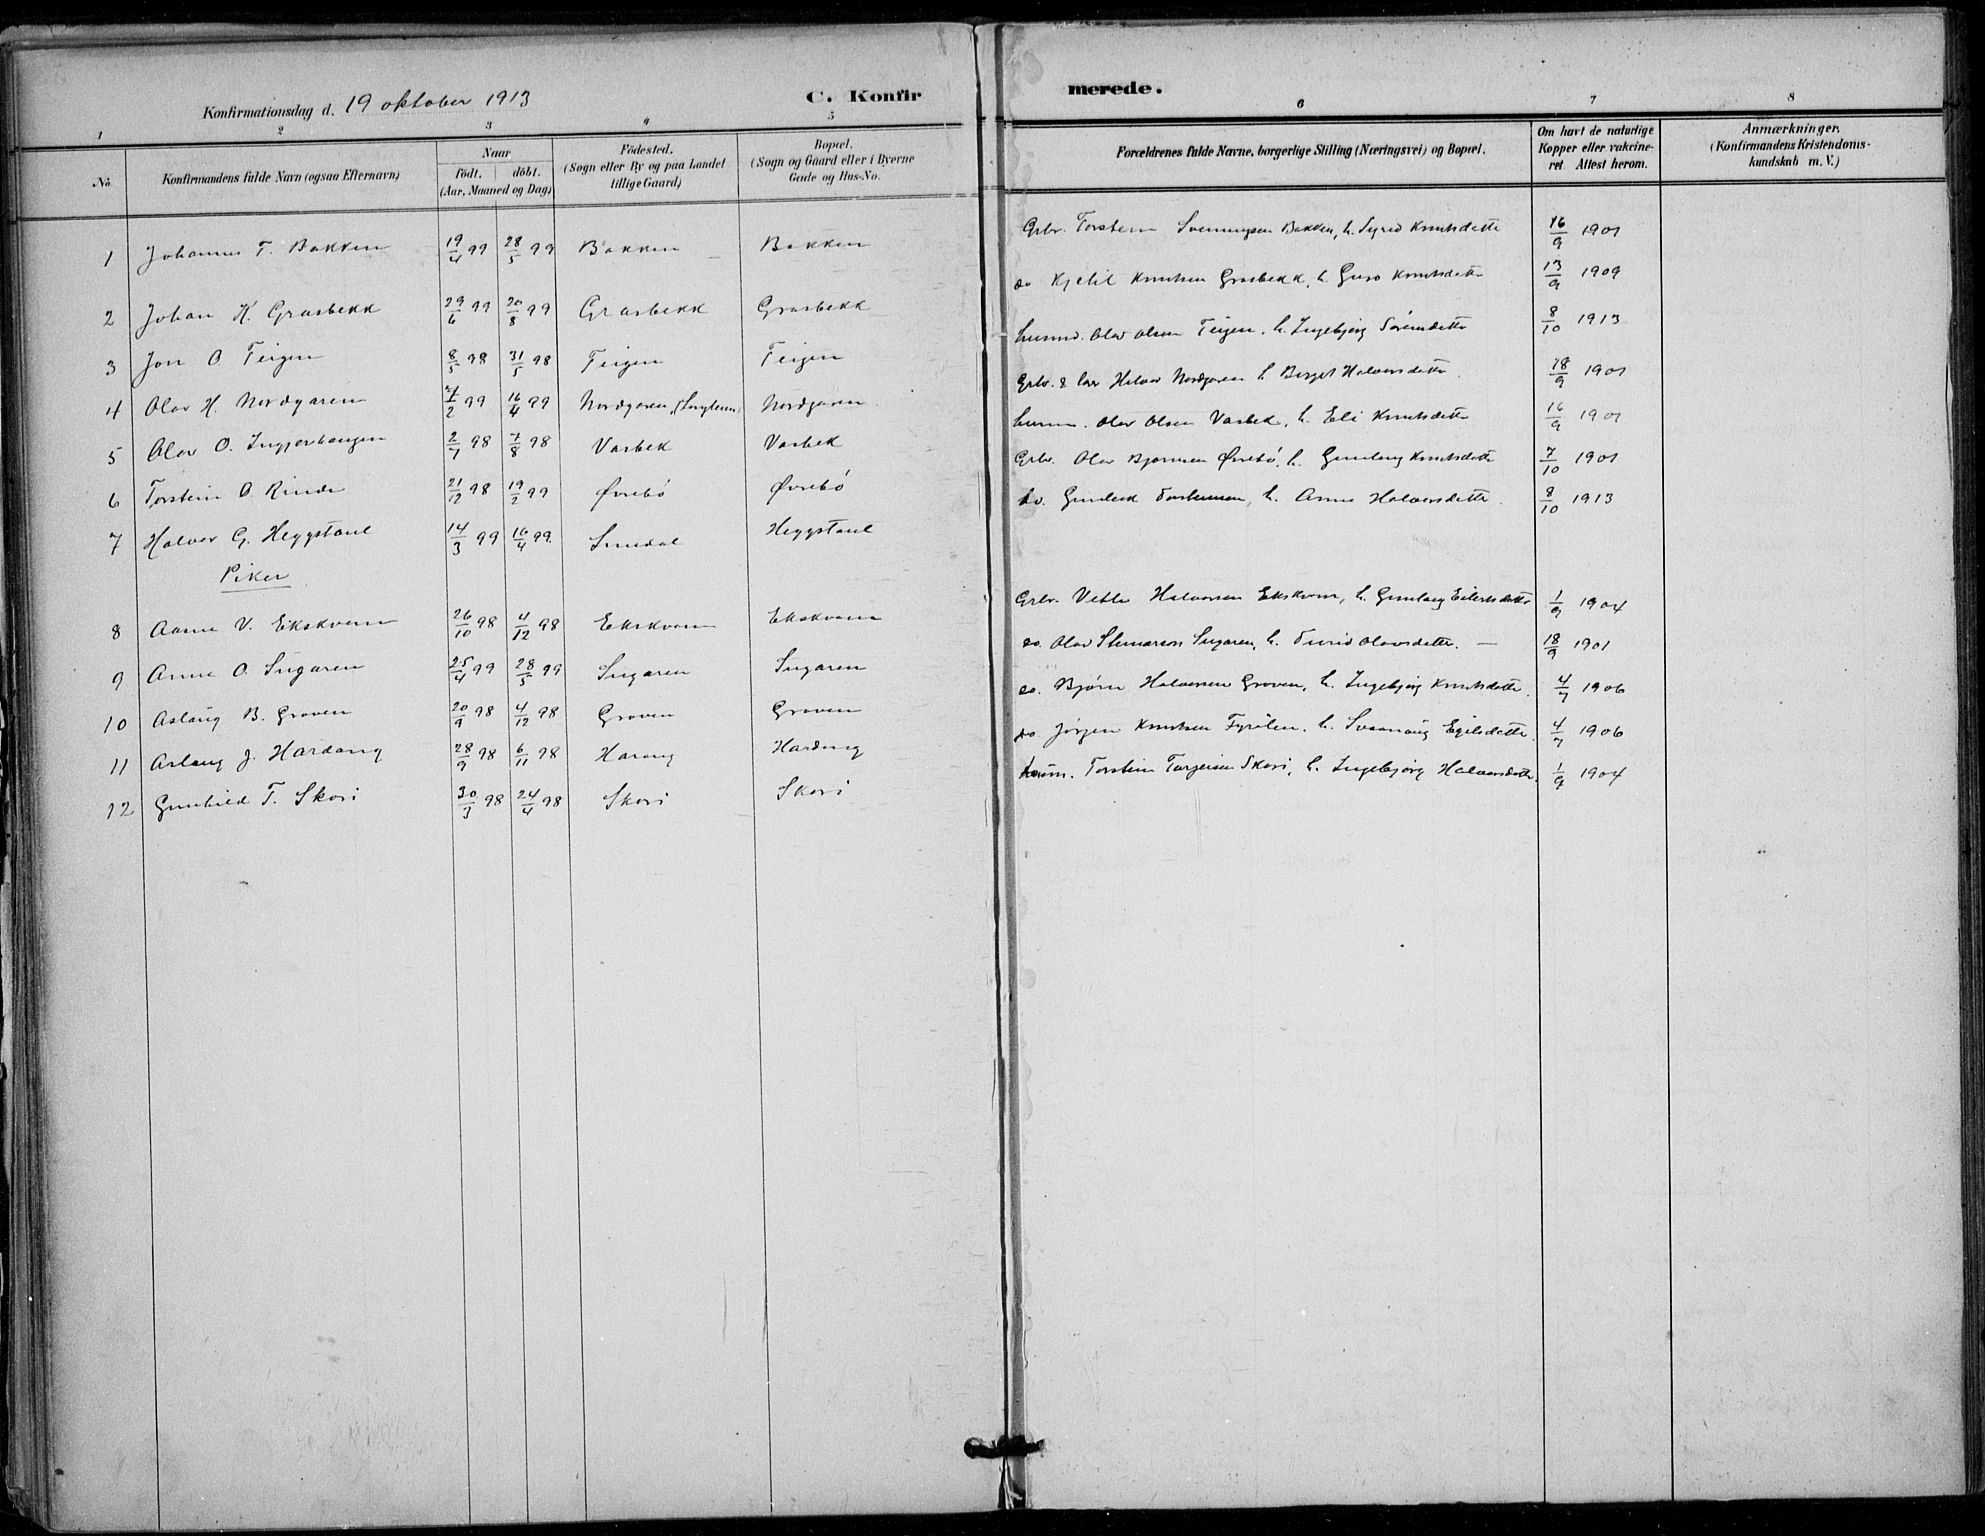 Konfirmationsdag d. 19 oktober 1913
C. Konfirmerede.
1 2 3 4 5 6 7 8
No. Konfirmandens fulde Navn (ogsaa Efternavn) Naar født. døbt. (Aar, Maaned og Dag) Födested. (Sogn eller By og paa Landet tillige Gaard) Bopæl. (Sogn og Gaard eller i Byerne Gade og Hus-No. Forældrenes fulde Navne, borgerlige Stilling (Næringsvei) og Bopæl. Om havt de naturlige Kopper eller vakcineret Attest herom. Anmærkninger. (Konfirmandens Kristendomskundskab m. V.)
1 Johannes T. Bakken 19/4 99 28/5 99 Bakken Bakken Grbr. Torstein Svenningsen Bakken, h. Sigrid Knutsdotter 16/9 1901
2 Johan K. Grasbekk 29/6 99 20/8 99 Grasbekk Grasbekk do Kjetil Knutsen Grasbekk, h. Guro Knutsdatter 13/9 1909
3 Jon O. Teigen 8/5 98 31/5 98 Teigen Teigen husmd. Olav Olsen Teigen, h. Ingebjørg 8/10 1913
4 Olav H. Nordgaren 7/2 99 16/4 99 Nordgaren Nordgaren Grbr. & Halvor Nordgaren h. Berget Halvorsdatter 18/9 1901
5 Olav O. Ingjerhaugen 2/7 98 7/8 98 Vasbek Vasbek husm. Olav Olsen Vasbek, h. Eli Knutsdatter 16/9 1901
6 Torstein O. Rinde 21/12 98 19/2 99 Øvrebö Øvrebö Grbr. Olav Bjørnsen Øvrebö, h. Gunlaug Knutsdatter 7/10 1901
7 Halvor G. Heggstaul 14/3 99 16/4 99. Sundal Heggstaul do. Gunleik Torsteinsen, h. Anne Halvorsdatter. 8/10 1913
Piker
8 Aasne V. Ekskvern 26/10 98 4/12 98 Ekskvern Ekskvern Grbr. Vetle Halvorsen Ekskvern, h. Gunlaug 1/9 1904
9 Anne O. Sugaren 25/4 99 28/5 99 Sugaren Sugaren do. Olav Steinarson Sugaren, h. Turid Olavsdatter. — 18/9 1901
10 Aslaug B. Groven 20/9 98 4/12 98 Groven Groven do. Bjørn Halvorsen Groven, h. Ingebjørg Knutsdatter. 4/7 1906
11 Aslaug J. Hardang 28/9 98 6/11 98 Harang Hardang do. Jörgen Knutsen h. Svanaug Egilsdatter. 4/7 1906
12 Gunhild T. Skori 30/3 98 24/4 98 Skori Skori husm. Torstein Torgeirsen Skori, h. Ingebjørg Halvorsdatter. 1/9 1904